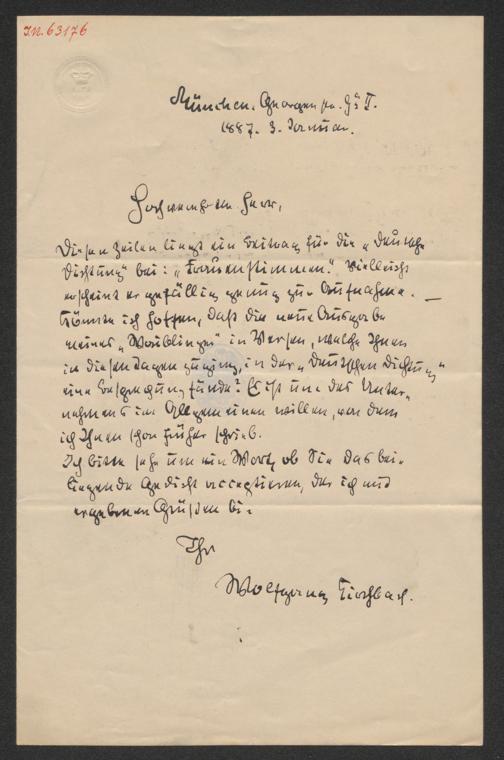 I.N. 63176
München. Georgenstr. II.
1887. 3. Januar.
Hochverehrter Herr,
Diesen Zeilen liegt ein Beitrag für die „Deutsche
Dichtung" bei: „Frauenstimmen." Vielleicht
erscheint er gefällig genug zur Aufnahme. —
Könnte ich hoffen, daß die neue Ausgabe
meines „ in Versen, welche Ihnen
in diesen Tagen zuging, in der „Deutschen Dichtung"
eine Besprechung fände? Es ist um des Unter-
nehmens im Allgemeinen willen, von dem
ich Ihnen schon früher schrieb.
Ich bitte sehr um ein Wort, ob Sie das bei-
liegende Gedicht acceptieren, der ich mit
ergebenen Grüßen bin
Ihr
Wolfgang Kirchbach.